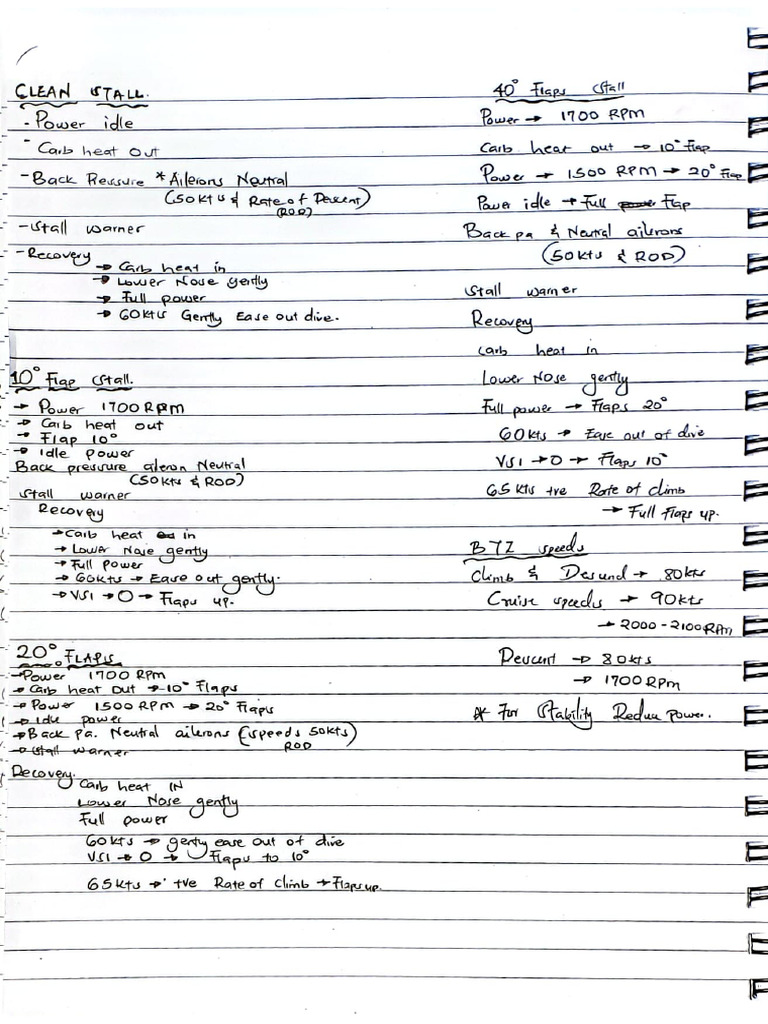 CLEAN STALL.
- Power idle
- Carb heat out
- Back Pressure * Ailerons Neutral
(50kts & Rate of Descent)
(ROD)
- Stall warner
- Recovery
→ Carb heat in
→ Lower Nose gently
→ Full power
→ 60kts Gently Ease out dive.
10° Flap Stall.
→ Power 1700 RPM
→ Carb heat out
→ Flap 10°
→ Idle power
Back pressure aileron Neutral
(50kts & ROD)
Stall warner
Recovery
→ Carb heat in
→ Lower Nose gently
→ Full power
→ 60kts → Ease out gently.
→ VSI → 0 → Flaps up.
20° FLAPS
→ Power 1700 RPM
→ Carb heat Out → 10° Flaps
→ Power 1500 RPM → 20° Flaps
→ Idle power
→ Back pa. Neutral ailerons (speeds 50kts)
ROD
→ Stall warner
Recovery.
Carb heat IN
Lower Nose gently
Full power
60kts → gently ease out of dive
VSI → 0 → Flaps to 10°
65kts → +ve Rate of climb → Flaps up.
40° Flaps Stall
Power → 1700 RPM
Carb heat out → 10° Flap
Power → 1500 RPM → 20° Flap
Power idle → Full Flap
Back pa & Neutral ailerons
(50kts & ROD)
Stall warner
Recovery
Carb heat in
Lower Nose gently
Full power → Flaps 20°
60kts → Ease out of dive
VSI → 0 → Flaps 10°
65kts +ve Rate of climb
→ Full Flaps up.
BTZ speeds
Climb & Desend → 80kts
Cruise speeds → 90kts
→ 2000-2100RPM
Descent → 80kts
→ 1700 RPM
* For Stability Reduce power.